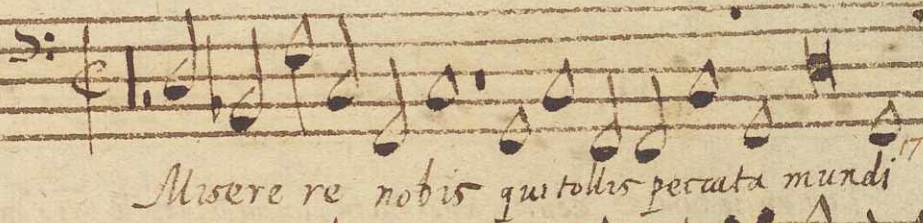 Miserere re nobis qui tollis peccata mundi
17